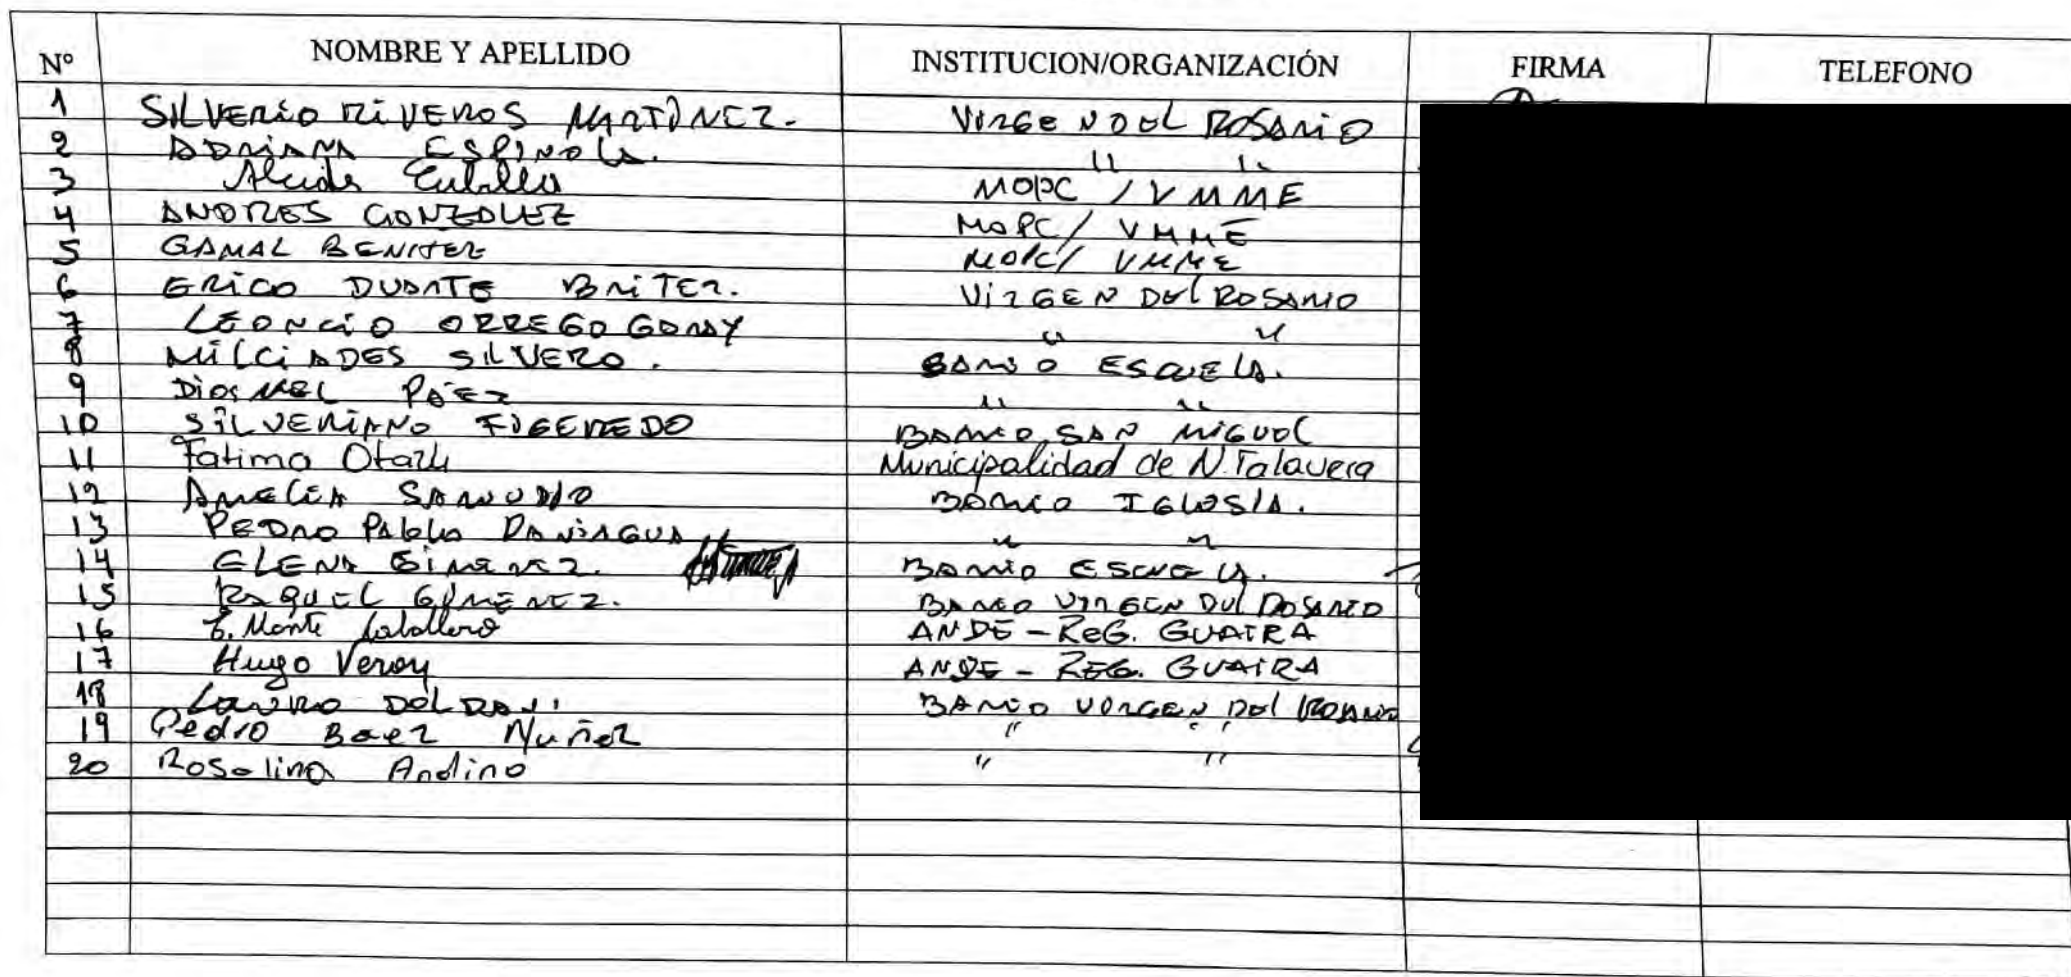 N° NOMBRE Y APELLIDO INSTITUCION/ORGANIZACIÓN FIRMA TELEFONO
1 SILVERIO RIVEROS MARTINEZ. VIRGEN DEL ROSARIO
2 ADRIANA ESPINOLA. " "
3 MOPC / VMME
4 ANDRES GONZALEZ MOPC / VMME
5 GAMAL BENITEZ MOPC / VMME
6 ERICO DUARTE BRITEZ. VIRGEN DEL ROSARIO
7 LEONCIO ORREGO GODAY " "
8 MILCIADES SILVERO. BARRIO ESCUELA.
9 DIOSNEL PÁEZ " "
10 SILVERIANO FIGEREDO BARRIO SAN MIGUEL
11 Fatima Otazu Municipalidad de N. Talavera
12 AMELIA SAMUDIO BARRIO IGLESIA.
13 PEDRO PABLO PANIAGUA " "
14 ELENA GIMENEZ. BARRIO ESCUELA.
15 RAQUEL GIMENEZ. BARRIO VIRGEN DEL ROSARIO
16 E. Monte Caballero ANDE - REG. GUAIRA
17 Hugo Veron ANDE - REG. GUAIRA
18 BARRIO VIRGEN DEL ROSARIO
19 Pedro Baez Nuñez " "
20 Rosalina Andino " "